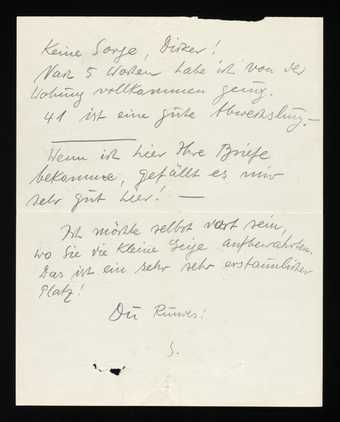 Keine Sorge, Dicker!
Nach 5 Wochen habe ich von der
Wohung vollkommen genug.
41 ist eine gute Abwechslung. —
Wenn ich hier Ihre Briefe
bekomme, gefällt es mir
sehr gut hier! —
Ich möchte selbst dort sein,
wo Sie die kleine Geige aufbewahrten.
Das ist ein sehr sehr erstaunlicher
Platz!
Du
S.